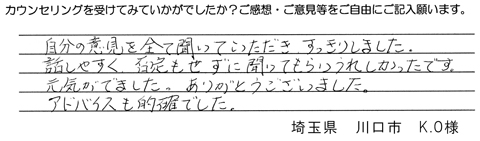 カウンセリングを受けてみていかがでしたか？ご感想・ご意見等をご自由にご記入願います。
自分の意見を全て聞いていただき すっきりしました。
話しやすく、否定もせずに聞いてもらいうれしかったです。
元気がでました。ありがとうございました。
アドバイスも的確でした。
埼玉県 川口市 K.O様